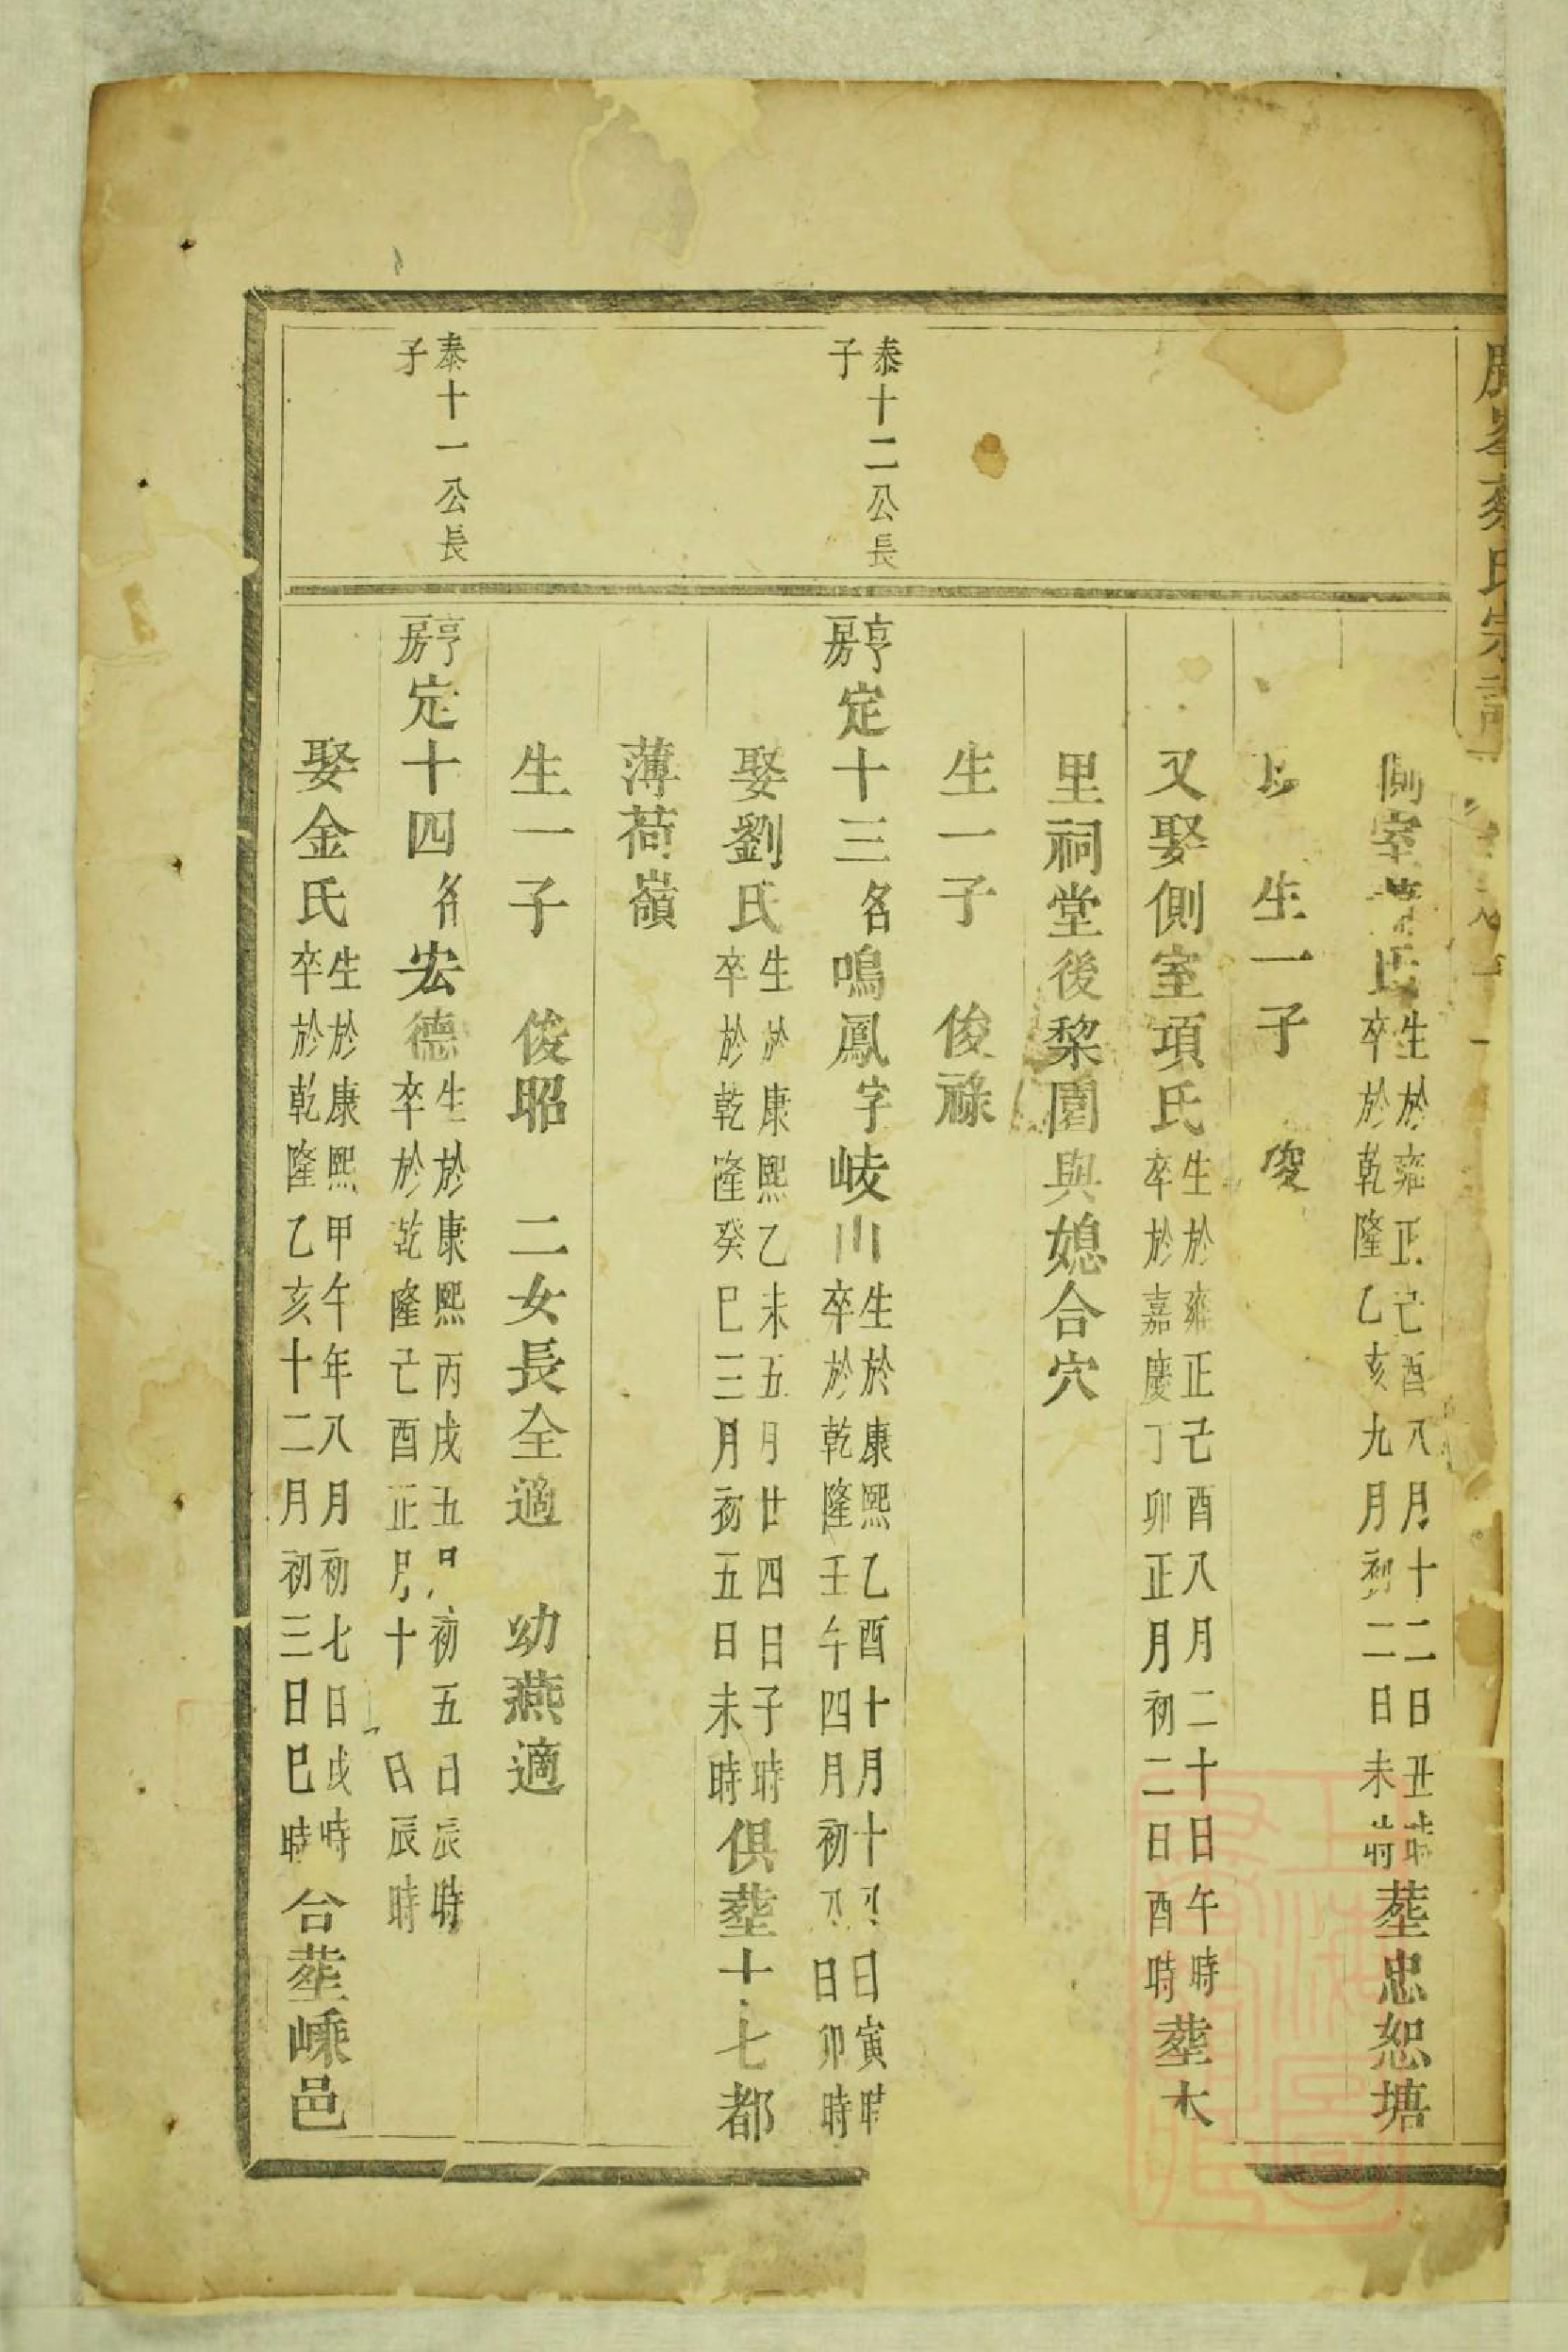 蔡氏宗譜
側室氏生於雍正己酉八月十二日丑時卒於乾隆乙亥九月初二日未時塟忠恕塘
生一子 俊
又娶側室項氏生於雍正己酉八月二十日午時卒於嘉慶丁卯正月初二日酉時塟本
里祠堂後棃園與媳合穴
生一子 俊祿
泰十二公長子
亨房定十三名鳴鳳字岐山生於康熙乙酉十月十日寅時卒於乾隆壬午四月初八日卯時
娶劉氏生於康熙乙未五月廿四日子時卒於乾隆癸巳三月初五日未時俱塟十七都
薄荷嶺
生一子 俊昭 二女長全適 幼燕適
泰十一公長子
亨房定十四名宏德生於康熙丙戌五月初五日辰時卒於乾隆己酉正月十日辰時
娶金氏生於康熙甲午年八月初七日戌時卒於乾隆乙亥十二月初三日巳時合塟嵊邑